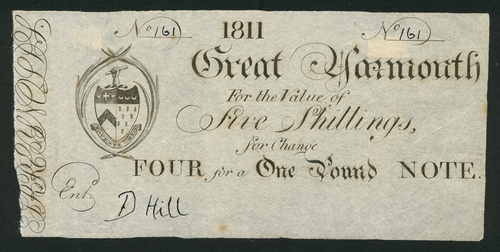 No 161 1811 No 161
Great Yarmouth
For the Value of
Five Shillings,
for Change
FOUR for a One Pound NOTE.
Entd.
D Hill